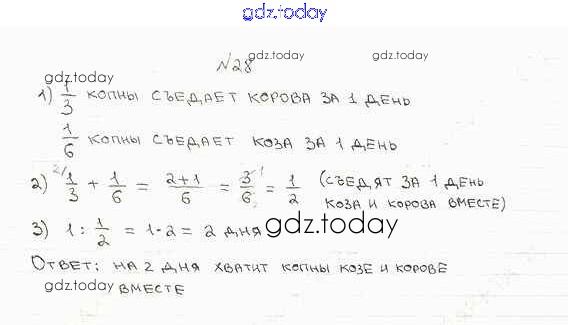 gdz.today
№28 gdz.today gdz.today
gdz.today
1) 1/3 КОПНЫ СЪЕДАЕТ КОРОВА ЗА 1 ДЕНЬ
1/6 КОПНЫ СЪЕДАЕТ КОЗА ЗА 1 ДЕНЬ
2) 2/ 1/3 + 1/6 = 2+1/6 = 3 1/6 2 = 1/2 (СЪЕДЯТ ЗА 1 ДЕНЬ
КОЗА И КОРОВА ВМЕСТЕ)
3) 1 : 1/2 = 1·2 = 2 ДНЯ gdz.today
ОТВЕТ: НА 2 ДНЯ ХВАТИТ КОПНЫ КОЗЕ И КОРОВЕ
gdz.today ВМЕСТЕ